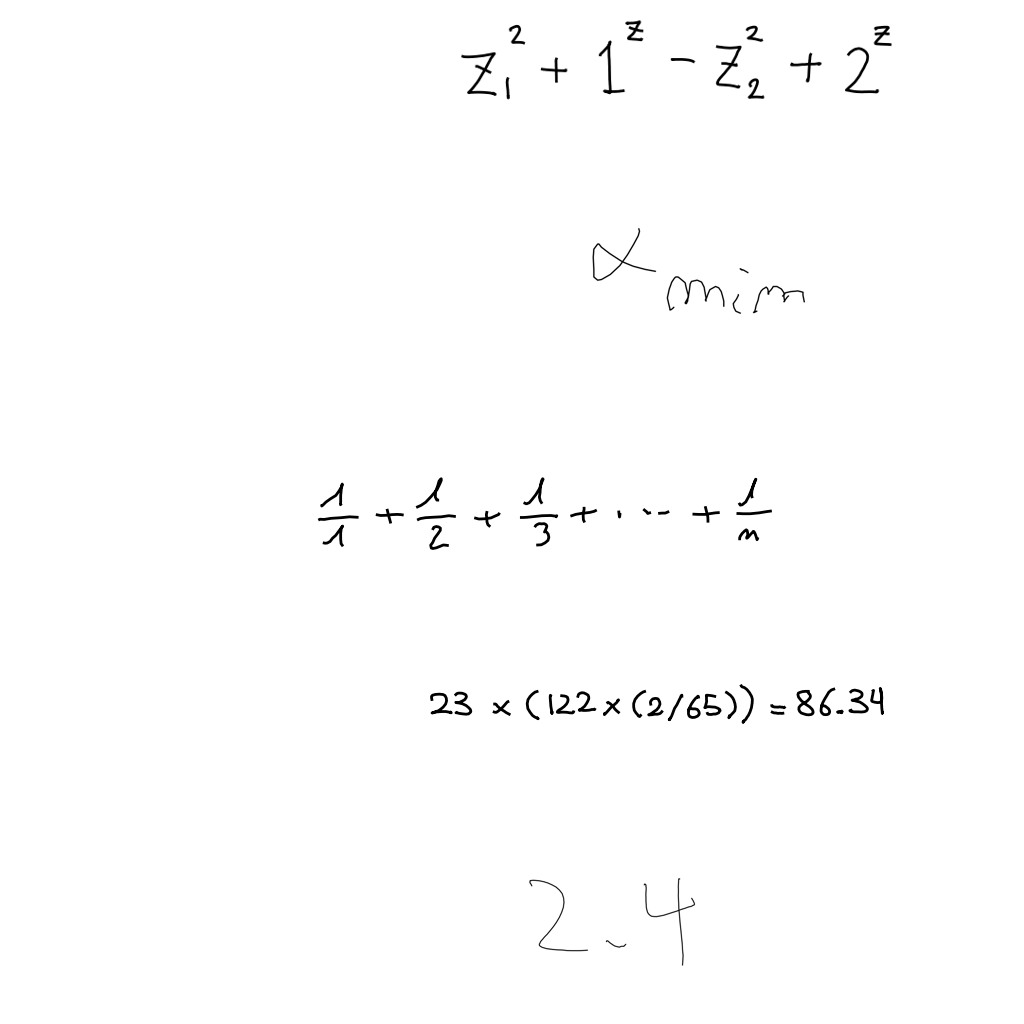 z₁² + 1ᶻ - z₂² + 2ᶻ
α_min
1/1 + 1/2 + 1/3 + ... + 1/n
23 × (122 × (2/65)) = 86.34
2.4